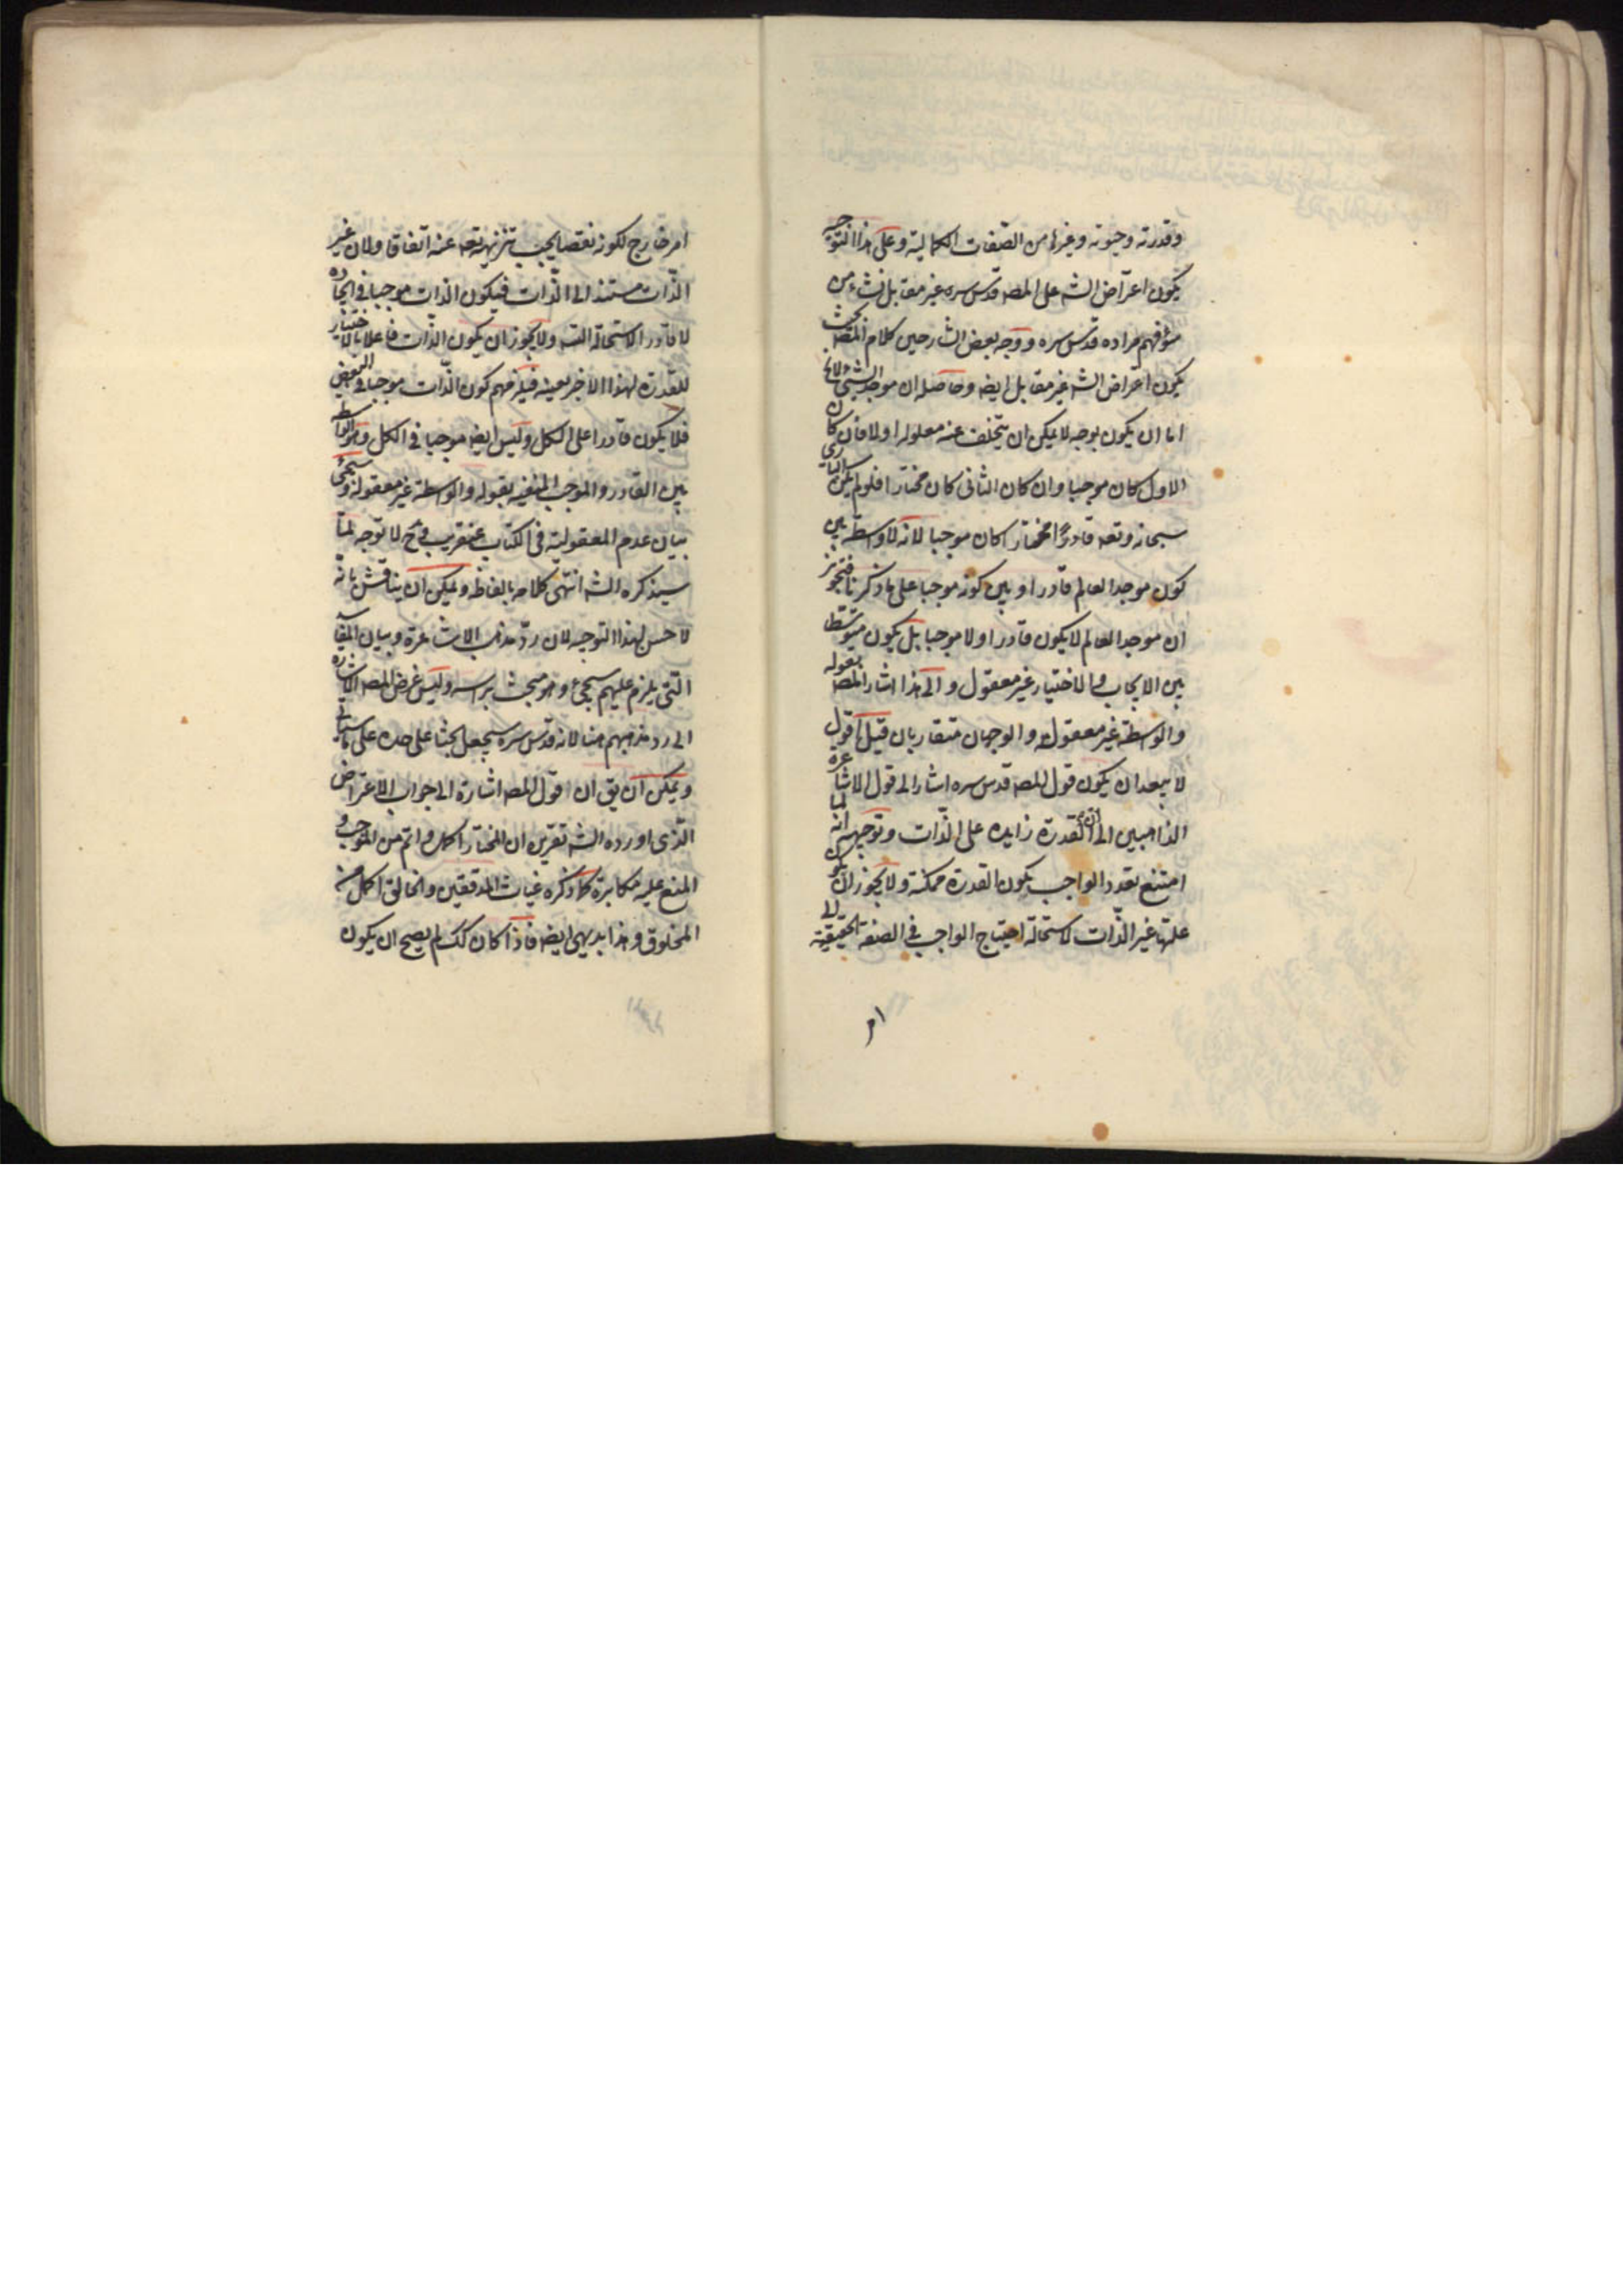 وقدرته وحيوته وغيرها من الصفات الكمالية وعلى هذا التوجيه
يكون اعتراض الشه على المصه قدس سره غير مقابل نشاء من
سؤ فهم مراده قدس سره ووجه بعض الشارحين كلام المصه بحيث
يكون اعتراض الشه غير مقابل ايضه وحاصله ان موجد الشئ لايخ
اما ان يكون بوجه لا يمكن ان يتخلف عنه معلوله اولا فان كان
الاول كان موجبا وان كان الثانى كان مختارا فلو لم يكن البارى
سبحانه وتعه قادرا مختارا كان موجبا لانه لا واسطة بين
كون موجد العالم قادرا وبين كونه موجبا على ما ذكرنا فتجويز
ان موجد العالم لا يكون قادرا ولا موجبا بل يكون متوسطا
بين الايجاب والاختيار غير معقول والى هذا اشار المصه بقوله
والواسطة غير معقولة والوجهان متقاربان قيل اقول
لا يبعد ان يكون قول المصه قدس سره اشار الى قول الاشاعره
الذاهبين الى ان القدرة زايده على الذات وتوجيهه انه لما
امتنع تعدد الواجب يكون القدرة ممكنة ولا يجوز ان يكون
علتها غير الذات لاستحالة احتياج الواجب فى الصفة الحقيقية الى
امر
امر خارج لكونه نقصا يجب تنزيهه تعه عنه اتفاقا ولان غير
الذات مستند الى الذات فيكون الذات موجبا فى ايجاده
لا قادرا لاستحالة التسه ولا يجوز ان يكون الذات فاعلا بالاختيار
للقدرة لهذا الاخير بعينه فيلزمهم كون الذات موجبا فى البعض
فلا يكون قادرا على الكل وليس ايضه موجبا فى الكل وهو الواسطة
بين القادر والموجب المنفيه بقوله والواسطة غير معقولة وسيجئ
بيان عدم المعقولية فى الكتاب عنقريب فح لا توجه لما
سيذكره الشه انتهى كلامه بالفاظه ويمكن ان يناقش بانه
لا حسن لهذا التوجيه لان رد مذهب الاشاعرة وبيان المفاسد
التى يلزم عليهم سيجئ وهو مبحث براسه وليس غرض المصه الاشاره
الى رد مذهبهم هنا لانه قدس سره سيجعل بحثا على حده على ما سياتى
ويمكن ان يق ان قول المصه اشارة الى جواب الاعتراض
الذى اورده الشه تقريره ان المختار اكمل واتم من الموجب و
المنع عليه مكابرة كما ذكره غياث المدققين والخالق اكمل من
المخلوق وهذا بديهى ايضه فاذا كان كك لم يصح ان يكون